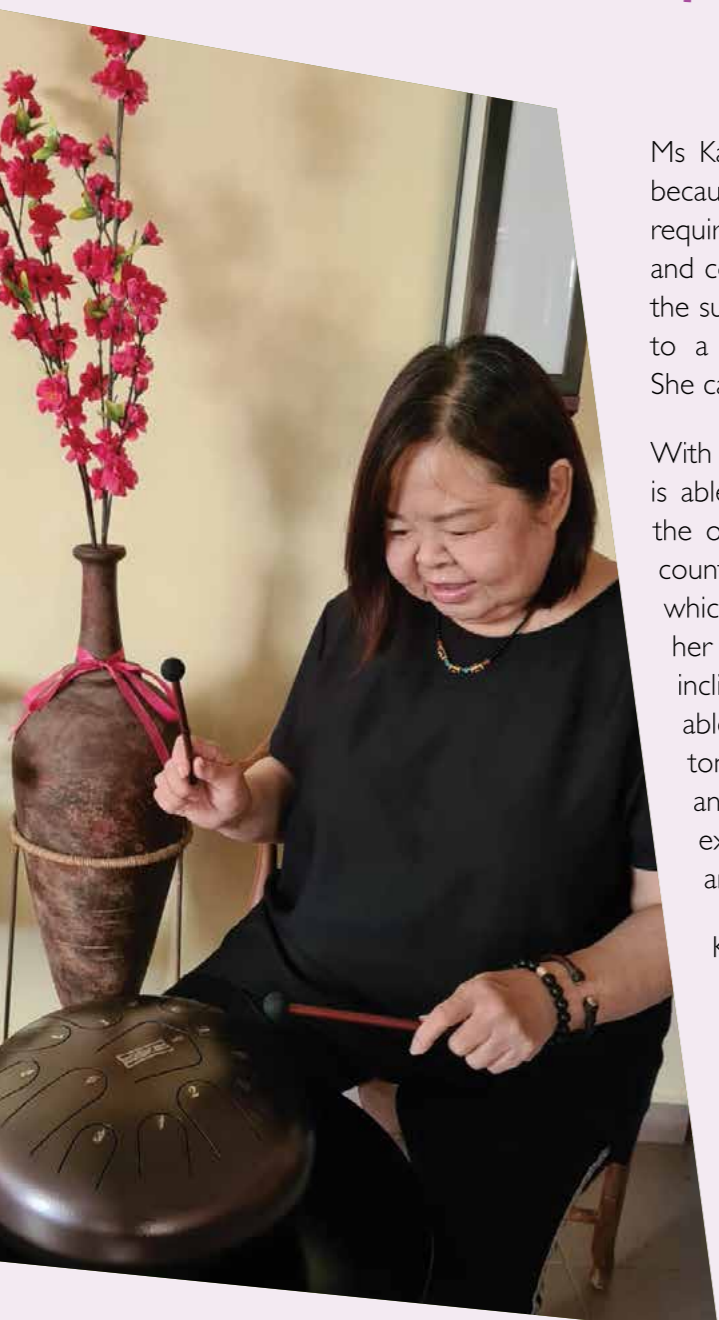 Ms Ka
becau
requir
and co
the su
to a
She ca
With
is able
the o
count
whic
her
incli
abl
ton
an
ex
a
K